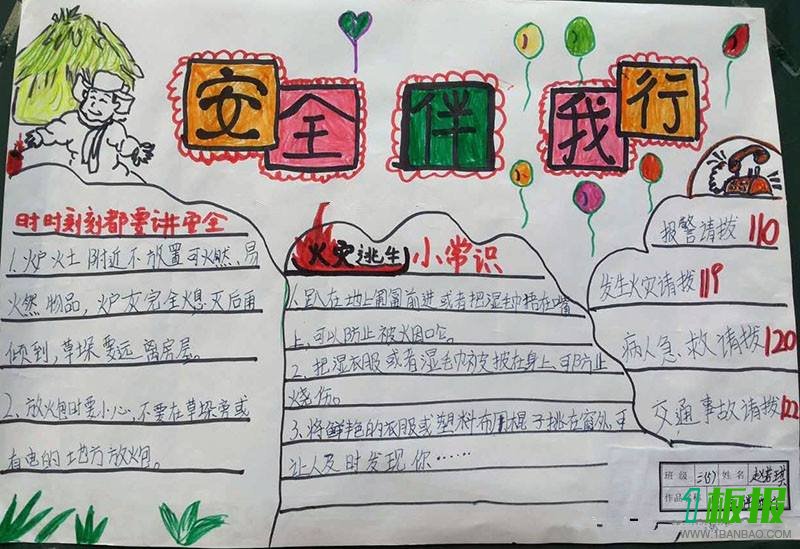 安全伴我行
时时刻刻都要讲安全
1. 炉火土附近不放置可燃、易
燃物品，炉灰完全熄灭后再
倾到，草垛要远离房屋。
2、放火包时要小心，不要在草垛旁或
有电的地方放火包。
火灾逃生 小常识
1. 趴在地上匍匐前进或者把湿毛巾捂在嘴
上，可以防止被火因呛。
2、把湿衣服或者湿毛巾被披在身上，可防止
烧伤。
3、将鲜艳的衣服或塑料布用棍子挑在窗外，可
让人及时发现你……
报警请拨 110
发生火灾请拨 119
病人急救请拨 120
交通事故请拨 122
班级 二(5) 姓名
作品名
1板报
WWW.1BANBAO.COM